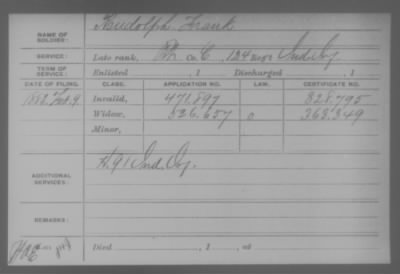 NAME OF SOLDIER: Rudolph, Frank
SERVICE: Late rank, Co. C, 124 Ind. Inf.
TERM OF SERVICE: Enlisted , 1 Discharged , 1
DATE OF FILING. CLASS. APPLICATION NO. LAW. CERTIFICATE NO.
1883, Feb. 9. Invalid, 471.897 828.795
Widow, 536.657 0 363.349
Minor,
ADDITIONAL SERVICES: 91 Ind. Inf.
REMARKS:
Died , 1 , at